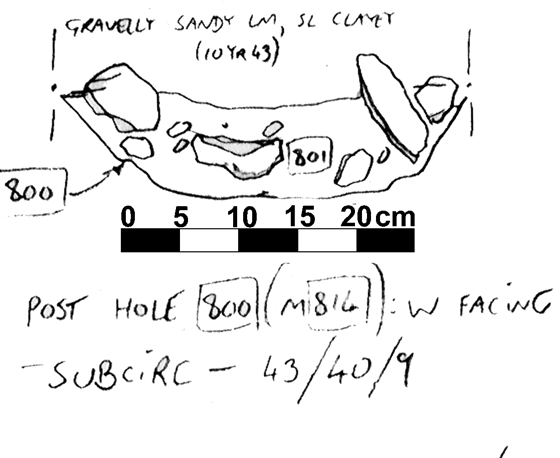 GRAVELLY SANDY LM, SL CLAYEY
(10YR43)
801
800
0 5 10 15 20cm
POST HOLE 800 (M814): W FACING
-SUBCIRC - 43/40/9